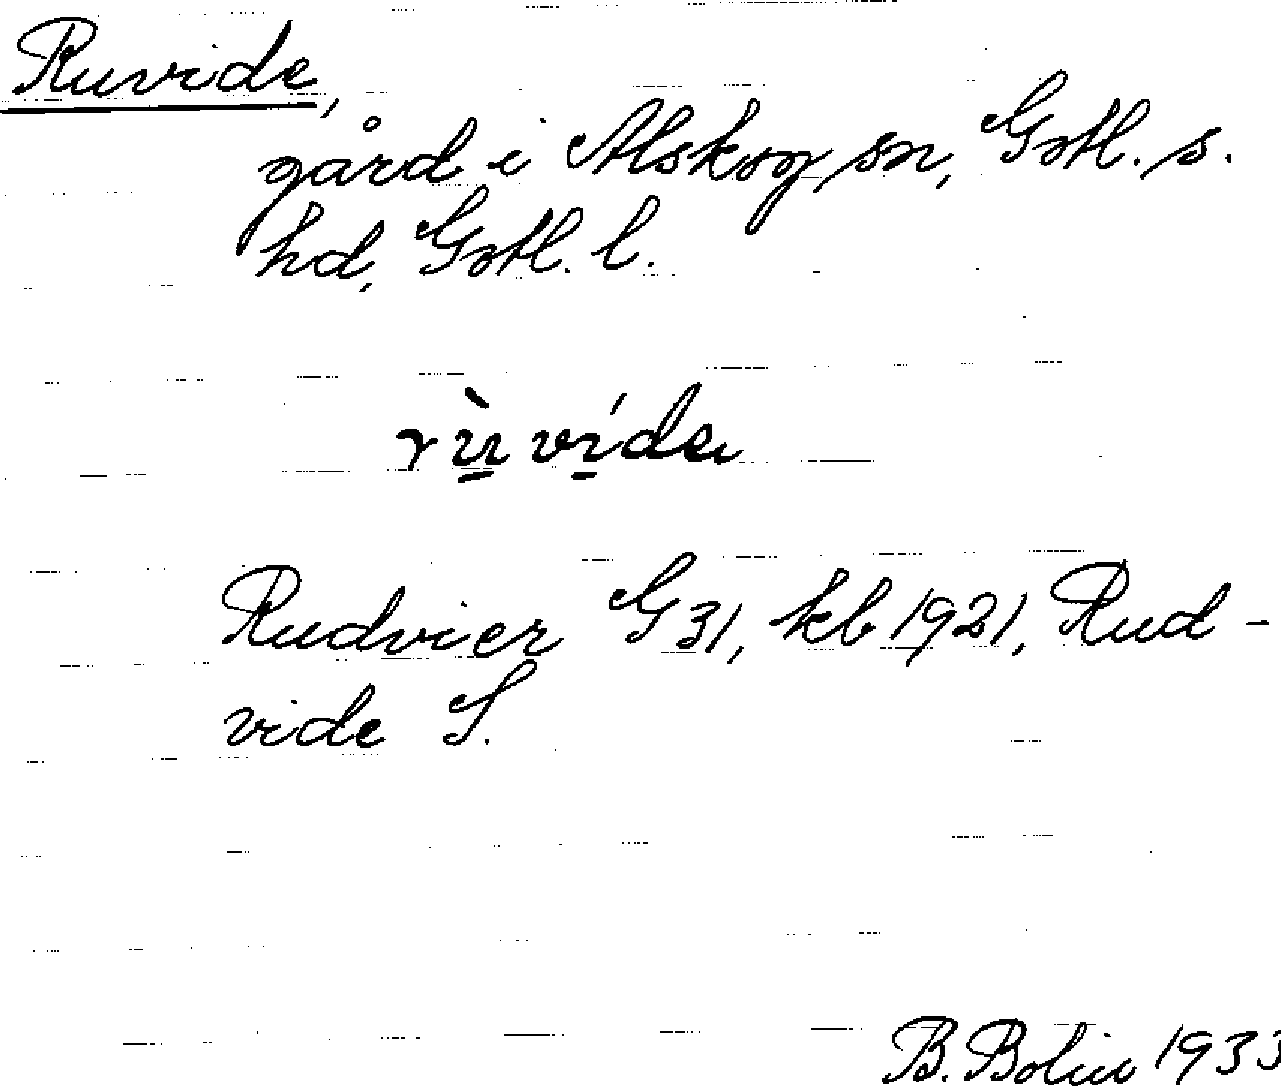 Ruvide,
gård i Alskog sn, Gotl. s.
hd, Gotl. l.
rù̱ví̱da
Rudvier G 31, kb 1921, Rud-
vide S.
B. Bolin 1933